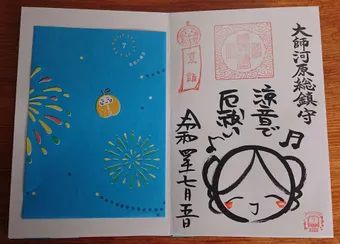 大師河原総鎮守
涼音で
厄祓い
令和四年七月五日
夏詣
7